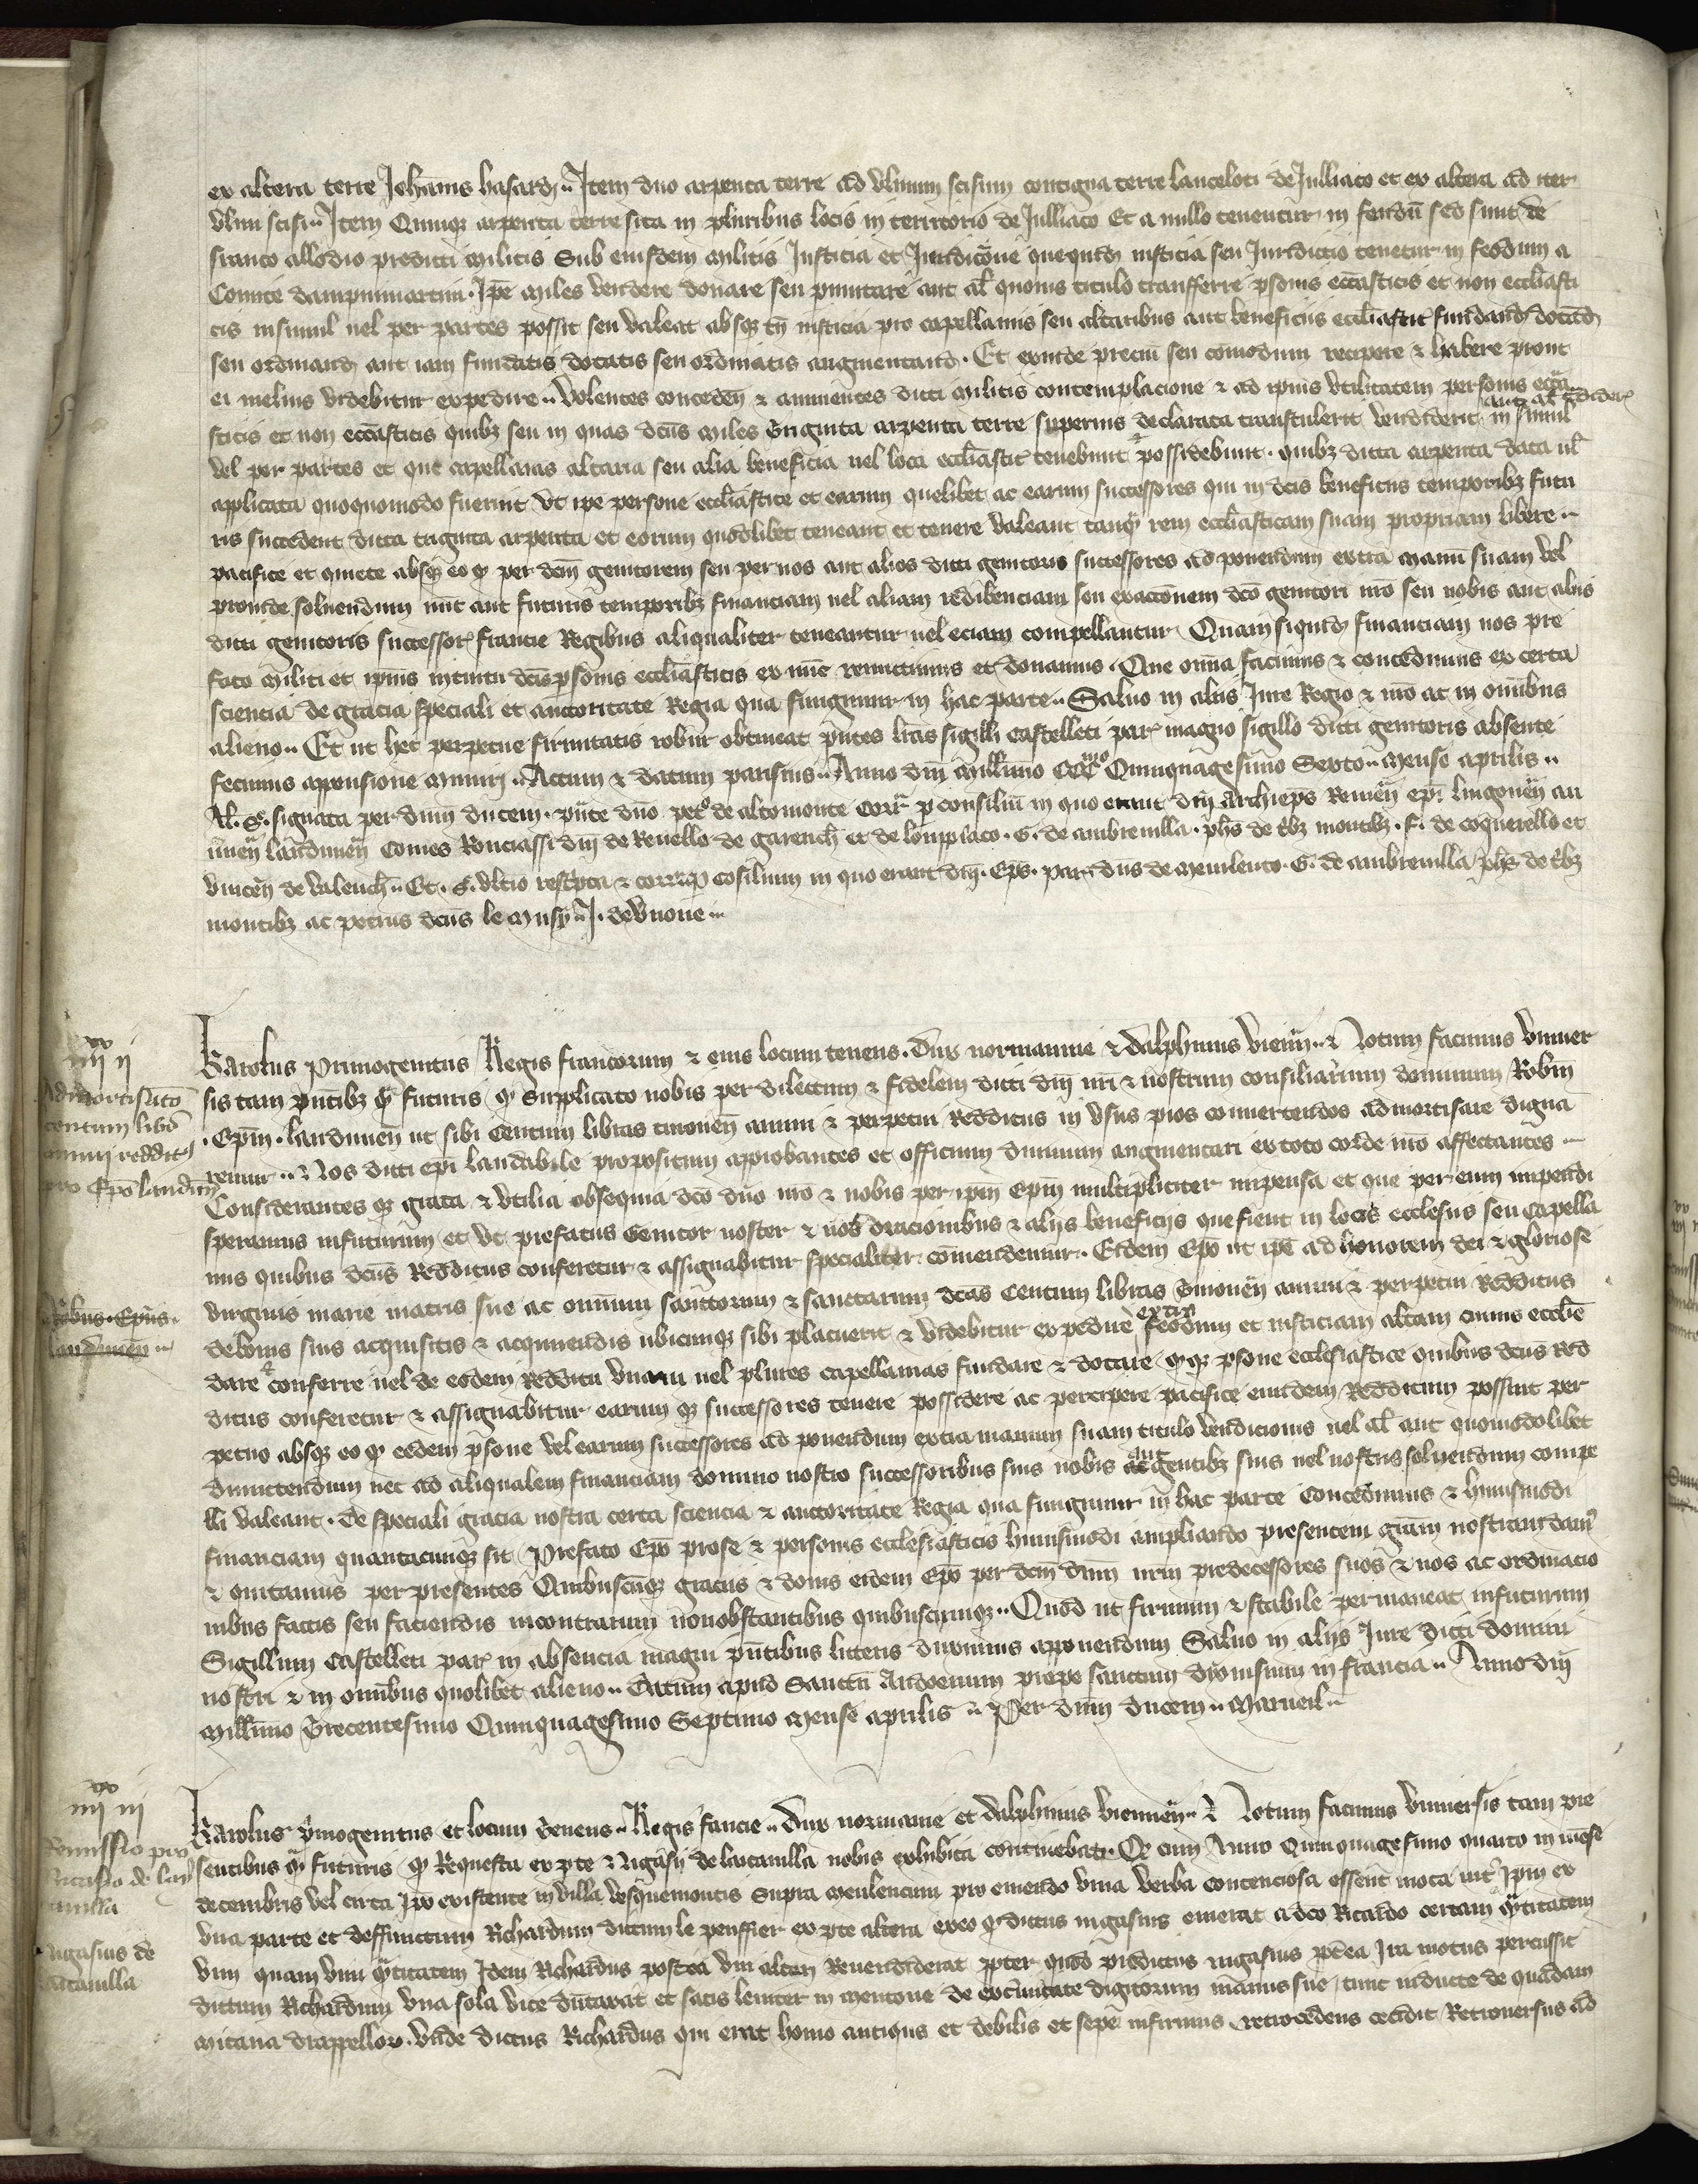 ex altera terre Johannis hasard. Item duo arpenta terre ad Ulmum scisum contigua terre lanceloti de Julliaco et ex altera ad iter
Ulmi scisi. Item Quinque arpenta terre sita in pluribus locis in territorio de Julliaco Et a nullo tenentur in feodum sed sunt de
franco allodio predicti militis Sub eiusdem militis Justicia et Juridicione que quidem iusticia seu Juridictio tenetur in feodum a
Comite dampnimartini. Ipse miles vendere donare seu permutare aut alias quovis titulo transferre personis ecclesiasticis et non ecclesiasti
cis insimul vel per partes possit seu valeat absque tamen iusticia pro capellaniis seu altaribus aut beneficiis ecclesiasticis fundandis dotandis
seu ordinandis aut iam fundatis dotatis seu ordinatis augmentandis. Et exinde precium seu comodum recipere & habere prout
ei melius videbitur expedire. Volentes concedentes & annuentes dicti militis contemplacione & ad ipsius utilitatem personis ecclesia
aut alias tradiderit
sticis et non ecclesiasticis quibus seu in quas dictus miles Triginta arpenta terre superius declarata transtulerit vendiderit insimul
vel per partes et que capellanias altaria seu alia beneficia vel loca ecclesiastica tenebunt & possidebunt. quibus dicta arpenta data vel
applicata quoquomodo fuerint Ut ipse persone ecclesiastice et earum quelibet ac earum successores qui in dictis beneficiis temporibus futu
ris succedent dicta triginta arpenta et eorum quodlibet teneant et tenere valeant tanquam rem ecclesiasticam suam propriam libere
pacifice et quiete absque eo quod per dictum genitorem seu per nos aut alios dicti genitoris successores ad ponendum extra manum suam vel
proinde solvendum nunc aut futuris temporibus financiam vel aliam redibenciam seu exactionem dicto genitori nostro seu nobis aut aliis
dicti genitoris successoribus francie Regibus aliqualiter teneantur vel eciam compellantur Quam siquidem financiam nos pre
fato militi et ipsius intuitu dictis personis ecclesiasticis ex nunc remittimus et donamus. Que omnia facimus & concedimus ex certa
sciencia de gracia speciali et auctoritate Regia qua fungimur in hac parte. Salvo in aliis Jure Regio & nostro ac in omnibus
alieno. Et ut hec perpetue firmitatis robur obtineat presentes litteras sigilli Castelleti parisiensis magno sigillo dicti genitoris absente
fecimus appensione muniri. Actum & datum parisius. Anno domini Millesimo CCCmo Quinquagesimo Sexto. Mense aprilis.
Al. S. signata per dominum ducem. presente domino petro de altomonte Corr. per consilium in quo erant domini Archiepiscopus Remensis episcopi lingonensis au
laudunensis Comes Rouciassi domini de Revello de garench et de lompriaco. G. de ambrevilla. phs de tribus montibus. F. de coquerello et
vincen de valench. Et. S. ultimo rescripta & correcta per consilium in quo erant domini. Eps. par. dominus de meulento. G. de ambrevilla phs de tribus
montibus ac petrus dictus le musy. J. de Vnoue.

iiiixx ii
Admortisatio
centum librarum
annui redditus
pro Episcopo laudunensi
Robertus Episcopus
laudunensis

Karolus Primogenitus Regis francorum & eius locum tenens. Dux normannie & dalphinus viennensis. Notum facimus univer
sis tam presentibus quam futuris quod supplicato nobis per dilectum & fidelem dicti domini nostri & nostrum consiliarium dominum Robertum
Episcopum laudunensem ut sibi Centum libras turonensium annui & perpetui Redditus in usus pios convertendos admortisare digna
remur. Nos dicti episcopi laudabile propositum approbantes et officium divinum augmentari ex toto corde nostro affectantes
Considerantes quoque grata & utilia obsequia dicto domino nostro & nobis per ipsum Episcopum multipliciter impensa et que per eum impendi
speramus infuturum et ut prefatus Genitor noster & nos oracionibus & aliis beneficiis que fient in locis ecclesiis seu Capella
niis quibus dictus Redditus conferetur & assignabitur specialiter comendemur. Eidem Episcopo ut ipse ad honorem dei & gloriose
virginis marie matris sue ac omnium sanctorum & sanctarum dictas Centum libras Turonensium annui & perpetui Redditus
de bonis suis acquisitis & acquirendis ubicunque sibi placuerit & videbitur expedire extra feodum et iusticiam altam cuivis ecclesie
dare & conferre vel de eodem Redditu unam vel plures capellanias fundare & dotare quodque persone ecclesiastice quibus dictus Red
ditus conferetur & assignabitur earumque successores tenere possidere ac percipere pacifice eundem Redditum possint per
petuo absque eo quod eedem persone vel earum successores ad ponendum extra manum suam titulo vendicionis vel alias aut quomodolibet
dimittendum nec ad aliqualem financiam domino nostro successoribus suis nobis aut gentibus suis vel nostris solvendum compe
lli valeant. De speciali gracia nostra certa sciencia & auctoritate Regia qua fungimur in hac parte Concedimus & huiusmodi
financiam quantacunque sit Prefato Episcopo pro se & personis ecclesiasticis huiusmodi ampliando presentem graciam nostram damus
& quitamus per presentes Quibuscunque graciis & donis eidem Episcopo per dictum dominum nostrum predecessores suos & nos ac ordinacio
nibus factis seu faciendis incontrarium nonobstantibus quibuscunque. Quod ut firmum & stabile permaneat infuturum
Sigillum Castelleti parisiensis in absencia magni presentibus litteris duximus apponendum Salvo in aliis Jure dicti domini
nostri & in omnibus quolibet alieno. Datum apud Sanctum Audoenum prope sanctum dyonisium in francia. Anno domini
Millesimo Trecentesimo Quinquagesimo Septimo Mense aprilis. Per dominum ducem. Marueil.

iiiixx iii
Remissio pro
Nicasio de
villa
Nigasius de
villa

Karolus primogenitus et locum tenens Regis francie. Dux normannie et dalphinus viennensis. Notum facimus Universis tam pre
sentibus quam futuris quod Requesta ex parte Nigasii de lutanilla nobis exhibita continebat. Quod cum Anno Quinquagesimo quarto in mense
decembris vel circa Ipso existente in villa supra meulencum pro emendo vina verba contenciosa essent mota inter Ipsum ex
una parte et deffunctum Richardum dictum le penssier ex parte altera ex eo quod dictus nigasius emerat a dicto Ricardo certam quantitatem
vini quam vini quantitatem Idem Richardus postea uni alteri Revendiderat propter quod predictus nigasius postea Ira motus percussit
dictum Richardum una sola vice duntaxat et satis leniter in mentone de extremitate digitorum manus sue tunc inducte de quadam
mitana drappellorum. Unde dictus Richardus qui erat homo antiqus et debilis et sepe infirmus retrocedens cecidit Retroversus ad